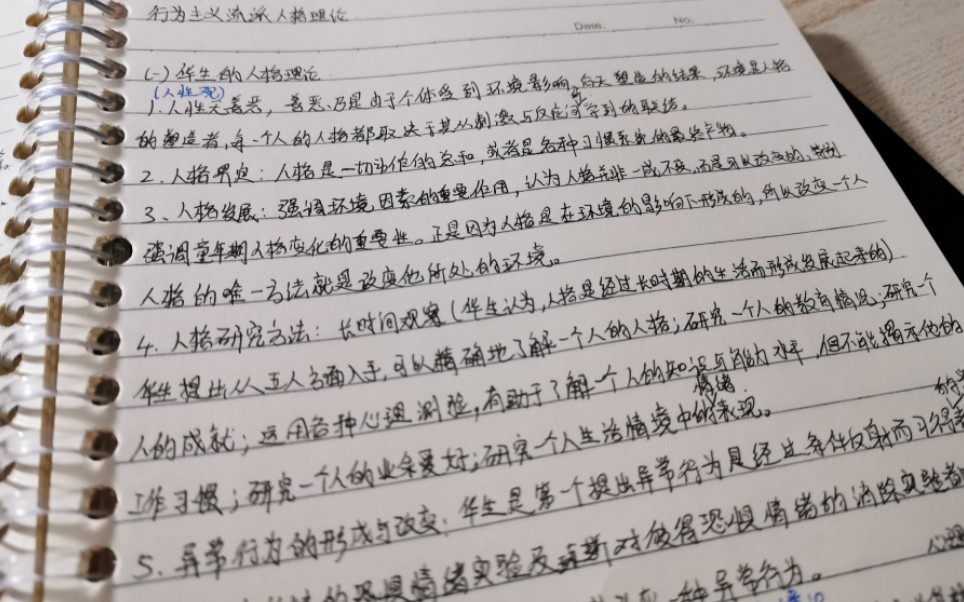 行为主义流派人格理论
Date. No.
(一) 华生的人格理论
(人性观)
1. 人性无善恶,善恶乃是由于个体受到环境影响,后天塑造的结果,环境是人格
的塑造者,每一个人的人格都取决于其从刺激与反应中学到的联结。
2. 人格界定:人格是一切动作的总和,或者是各种习惯系统的最终产物。
3、人格发展:强调环境因素的重要作用,认为人格并非一成不变,而是可以改变的,特别
强调童年期人格变化的重要性。正是因为人格是在环境的影响下形成的,所以改变一个人
人格的唯一方法就是改变他所处的环境。
4. 人格研究方法:长时间观察(华生认为,人格是经过长时期的生活而形成发展起来的)
华生提出从五个方面入手,可以精确地了解一个人的人格;研究一个人的教育情况;研究一个
人的成就;运用各种心理测验,有助于了解一个人的知识与能力水平,但不能揭示他的
情绪
工作习惯;研究一个人的业余爱好;研究一个人生活情境中的表现。
5. 异常行为的形成与改变:华生是第一个提出异常行为是经过条件反射而习得
的恐惧情绪实验及 对彼得恐惧情绪的消除实验
心理
一种异常行为。